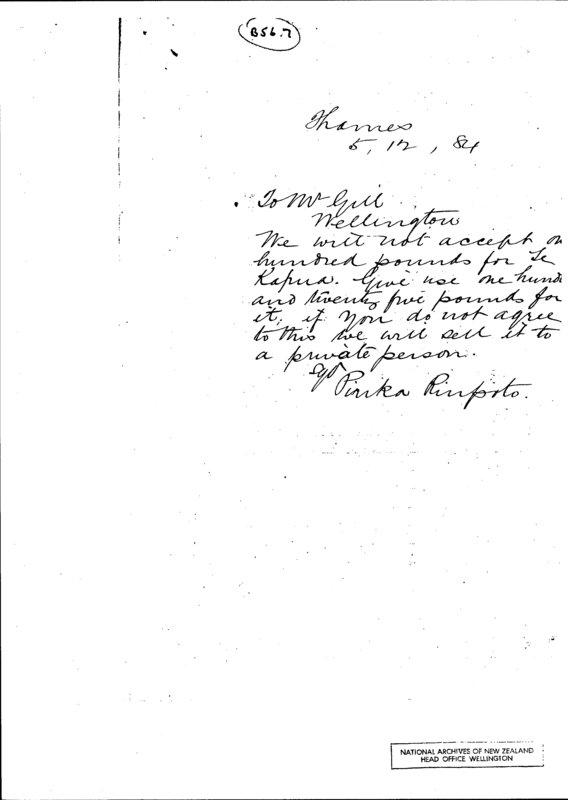 B56.7
Thames
5, 12, 84
To Mr Gill
Wellington
We will not accept on
hundred pounds for Te
Kapua. Give use one hund
and twenty five pounds for
it, if you do not agree
to this we will sell it to
a private person.
Sgd
NATIONAL ARCHIVES OF NEW ZEALAND
HEAD OFFICE WELLINGTON